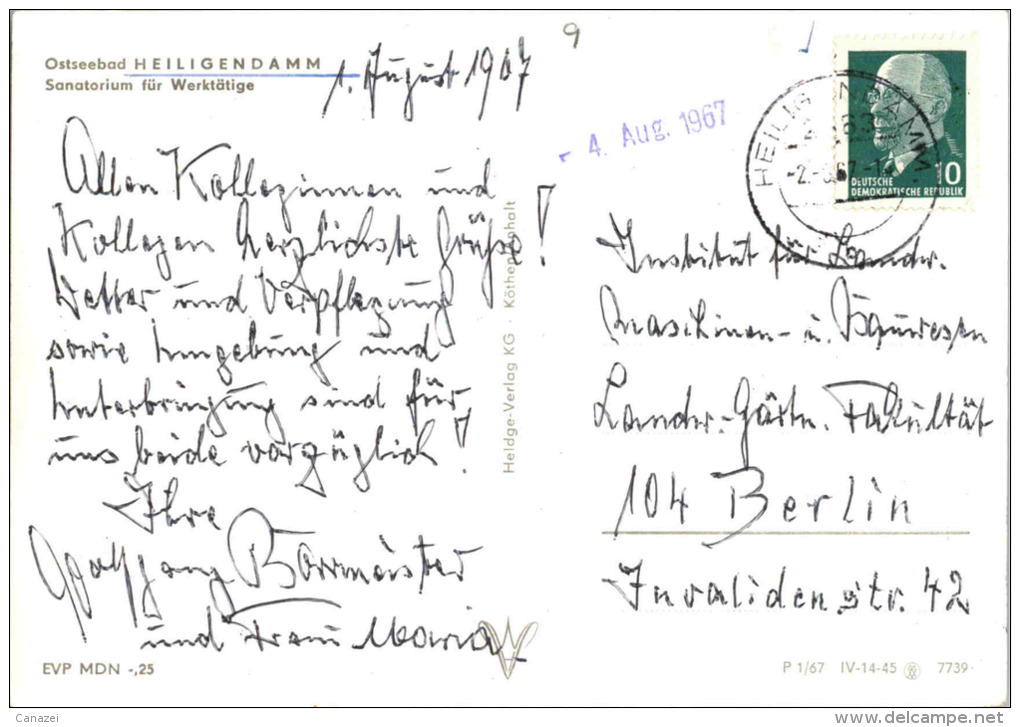 Ostseebad HEILIGENDAMM
Sanatorium für Werktätige
1. August 1967
9
- 4. Aug. 1967
HEILIGENDAMM
-2.-8.67.-1
10
DEUTSCHE
DEMOKRATISCHE REPUBLIK
Allen Kolleginnen und
Kollegen herzlichste Grüße!
Wetter und Verpflegung
sowie Umgebung und
Unterbringung sind für
uns beide vorzüglich!
Ihre
Wolfgang Bormeister
und Frau Maria
EVP MDN -,25
Heldge-Verlag KG · Köthen-Anhalt
Institut für Landw.
maschinen- u. Bauwesen
Landw.-Gärtn. Fakultät
104 Berlin
Invalidenstr. 42
P 1/67 IV-14-45 7739
Canazei
delcampe.net